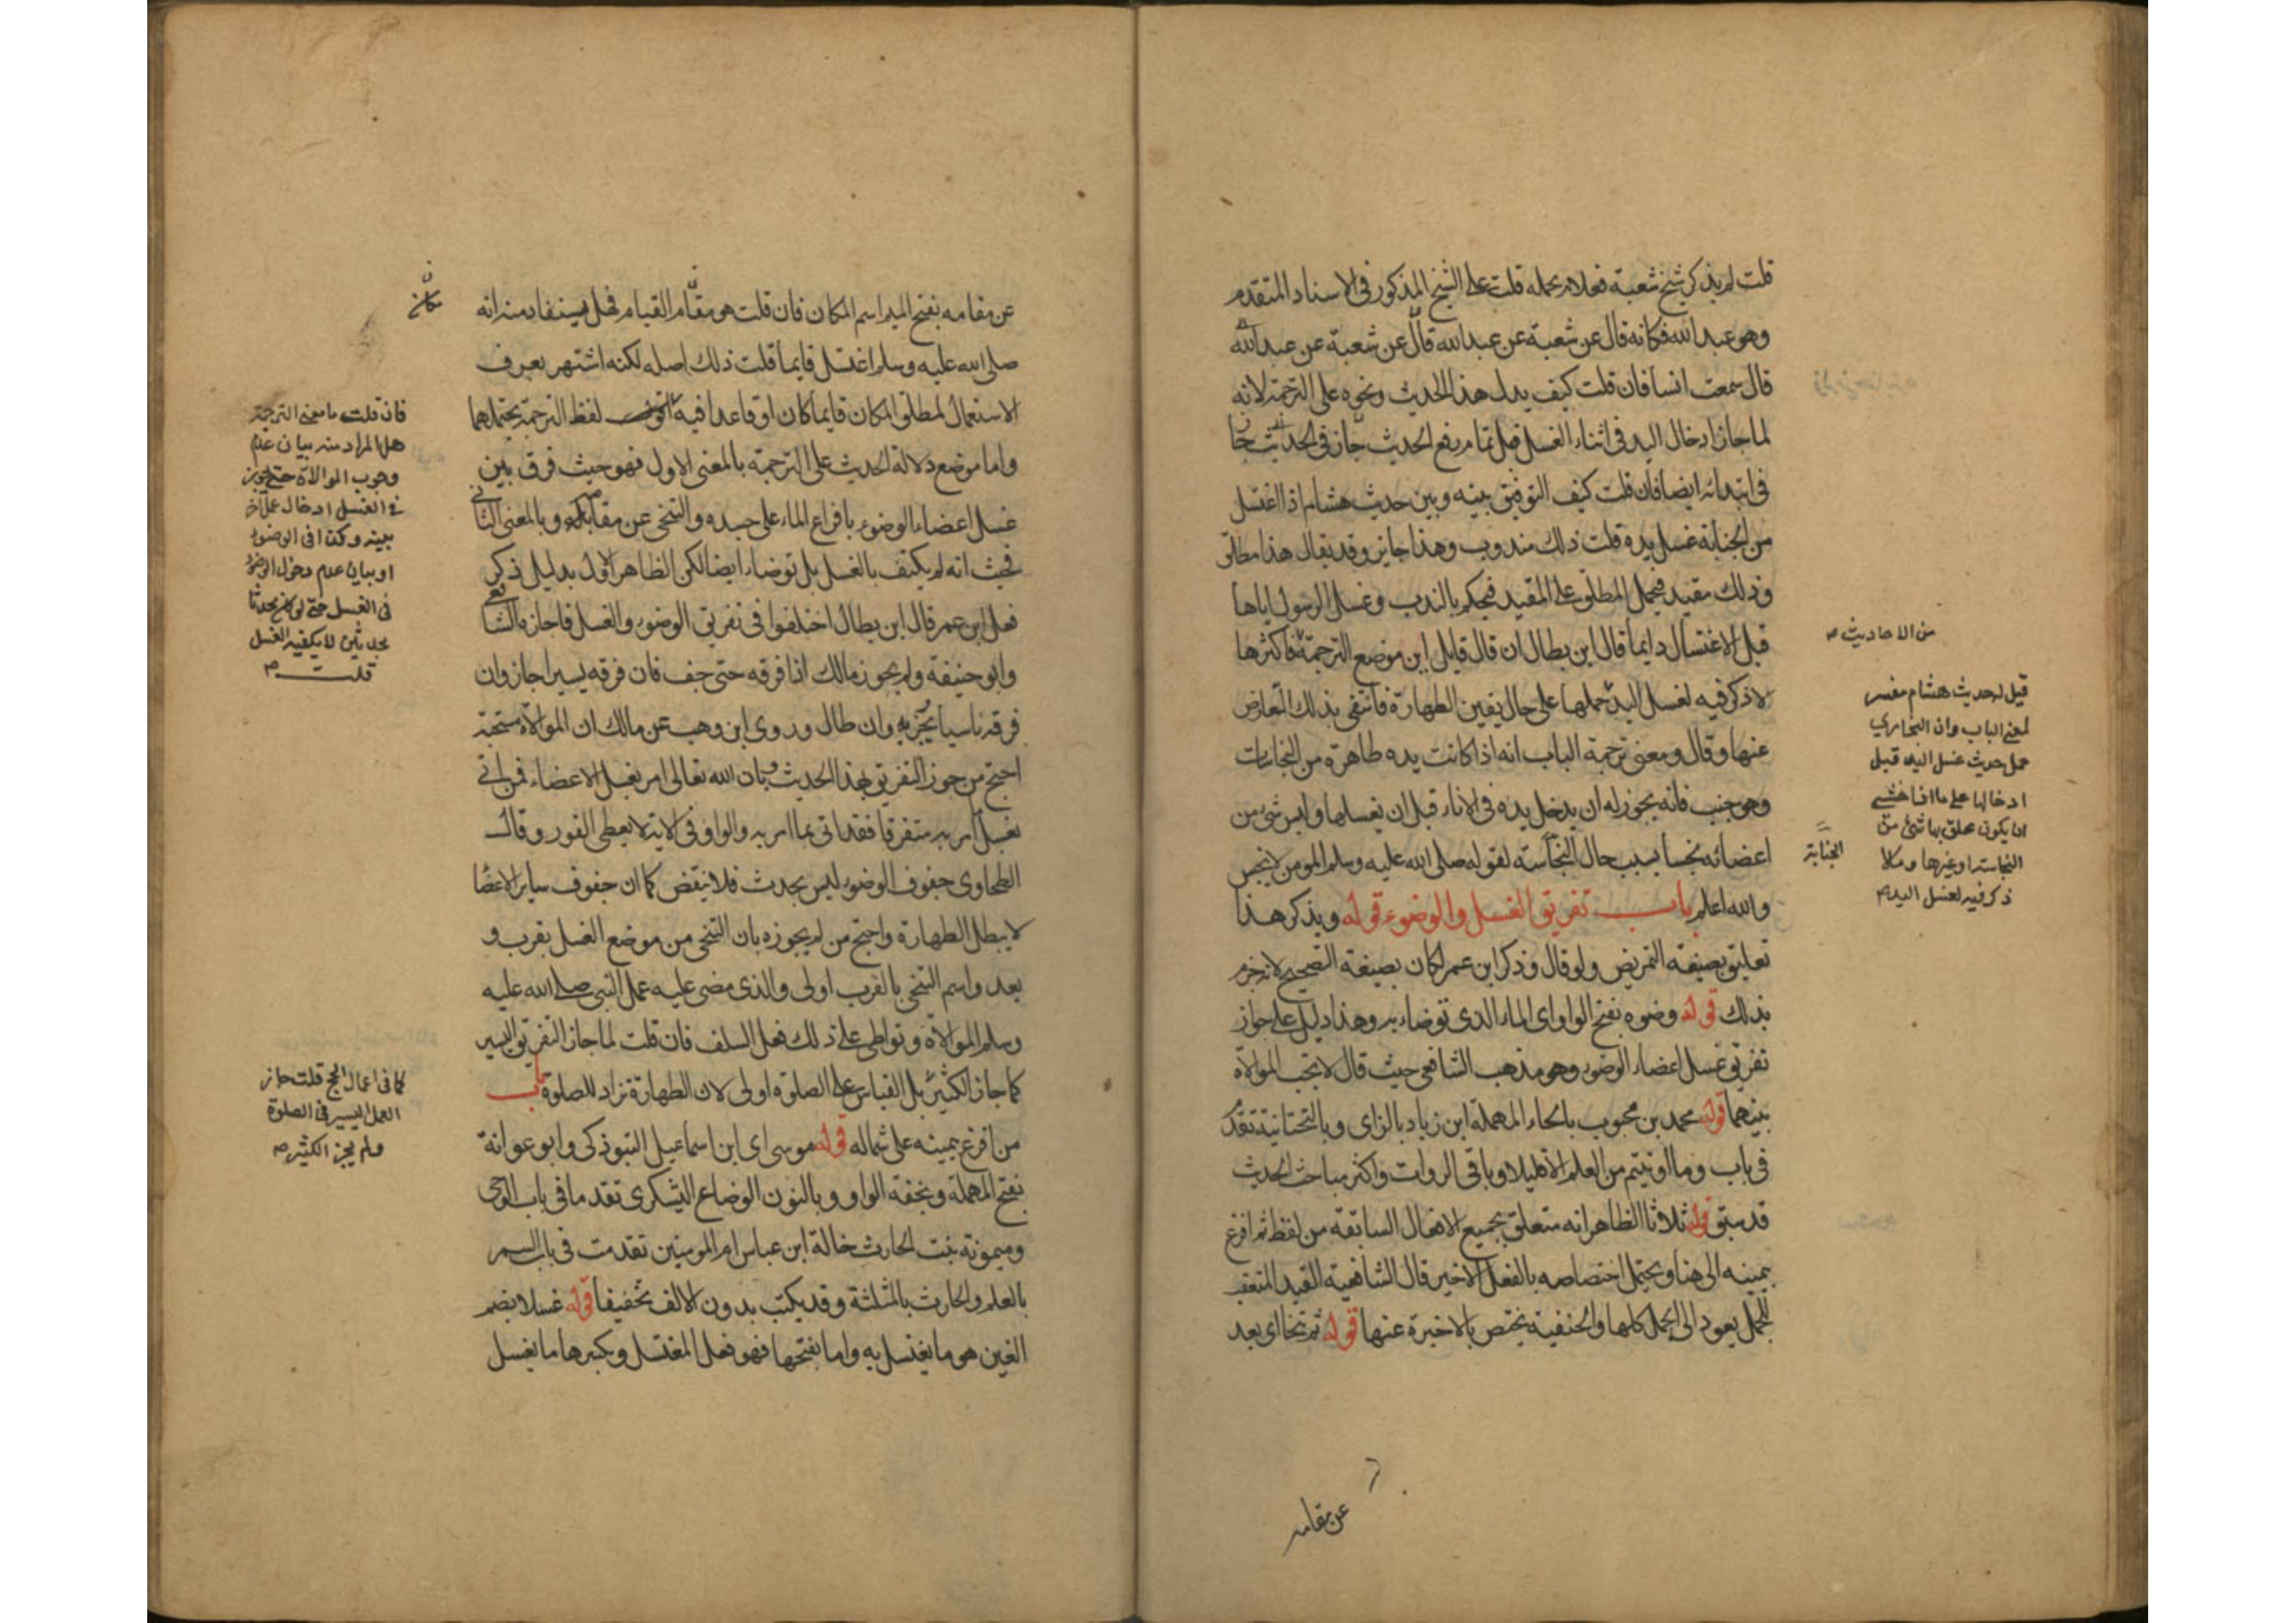 قلت لم يذكر شيخ شعبة فعلام يحمله قلت على الشيخ المذكور في الاسناد المتقدم
وهو عبد الله فكانه قال عن شعبة عن عبد الله قال عن شعبة عن عبد الله
قال سمعت انسا فان قلت كيف يدل هذا الحديث ونحوه على الترجمة لانه
لما جاز ادخال اليد في اثناء الغسل قبل تمام رفع الحدث جاز في
في ابتدائه ايضا فان قلت كيف التوفيق بينه وبين حديث هشام اذا اغتسل
من الجنابة غسل يده قلت ذلك مندوب وهذا جايز وقد يقال هذا مطلق
وذلك مقيد فيحمل المطلق على المقيد فيحكم بالندب وغسل الرسول اياها
قبل الاغتسال دايما قال ابن بطال ان قال قايل اين موضع الترجمة فاكثرها
لا ذكر فيه لغسل اليد حملها على حال يقين الطهارة فانتفى بذلك التعارض
عنها وقال ومعنى ترجمة الباب انه اذا كانت يده طاهرة من النجاسات
وهو جنب فانه يجوز له ان يدخل يده في الاناء قبل ان يغسلها وليس شئ من
اعضائه نجسا بسبب حال النجاسة لقوله صلى الله عليه وسلم المومن لا ينجس
والله اعلم باب تفريق الغسل والوضوء قوله ويذكر هذا
تعليق بصيغة التمريض ولو قال وذكر ابن عمر لكان بصيغة التصحيح لانه جزم
بذلك قوله وضوه بفتح الواو اي الماء الذي توضاء به وهذا دليل على جواز
تفريق غسل اعضاء الوضوء وهو مذهب الشافعي حيث قال لا تجب الموالاة
بينهما قوله محمد بن محبوب بالحاء المهملة ابن زياد بالزاي وبالتحتانية تقدم
في باب وما اوتيتم من العلم الا قليلا وباقي الروات واكثر مباحث الحديث
قد سبق قوله ثلاثا الظاهر انه متعلق بجميع الافعال السابقة من لفظ ثم افرغ
بيمينه الى هنا ويحتمل اختصاصه بالفعل الاخير قال الشافعية القيد المتعقب
للجمل يعود الى الجمل كلها والحنفية تختص بالاخيرة عنها قوله ثم تنحا اي بعد
عن مقامه
من الاحاديث صح
قيل له حديث هشام مفسر
لمعنى الباب وان البخاري
حمل حديث غسل اليد قبل
ادخالها على ما اذا خشي
ان يكون علق بها شئ من
النجاسة او غيرها وملا
ذكر فيه لغسل اليد صح
الجنابة
عن مقامه بفتح الميم اسم المكان فان قلت هو مقام القيام فهل يستفاد منه انه
صلى الله عليه وسلم اغتسل قايما قلت ذلك اصله لكنه اشتهر بعرف
الاستعمال لمطلق المكان قايما كان او قاعدا فيه لفظ الترجمة يحتملهما
واما موضع دلالة الحديث على الترجمة بالمعنى الاول فهو حيث فرق بين
غسل اعضاء الوضوء بافراغ الماء على جسده والتنحي عن مقامه وبالمعنى الثاني
فحيث انه لم يكتف بالغسل بل توضاء ايضا لكن الظاهر الاول بدليل ذكر
فعل ابن عمر قال ابن بطال اختلفوا في تفريق الوضوء والغسل فاجازه الشافعي
وابو حنيفة ولم يجوز مالك اذا فرقه حتى جف فان فرقه يسيرا جاز وان
فرقه ناسيا يجزيه وان طال وروى ابن وهب عن مالك ان الموالاة مستحبة
احتج من جوز التفريق بهذا الحديث وبان الله تعالى امر بغسل الاعضاء فمن اتى
بغسل امر به متفرقا فقد اتى بما امر به والواو في الاية لا يعطي الفور وقال
الطحاوي جفوف الوضوء ليس بحدث فلا ينقض كما ان جفوف ساير الاعضا
لا يبطل الطهارة واحتج من لم يجوزه بان التنحي من موضع الغسل بقرب و
بعد واسم التنحي بالقرب اولى والذي مضى عليه عمل النبي صلى الله عليه
وسلم الموالاة وتواطى على ذلك فعل السلف فان قلت لما جاز التفريق اليسير
كما جاز الكثير بل القياس على الصلوة اولى لان الطهارة تراد للصلوة باب
من افرغ بيمينه على شماله قوله موسى اي ابن اسماعيل التبوذكي وابو عوانة
بفتح المهملة وبخفة الواو وبالنون الوضاع اليشكري تقدما في باب الوحي
وميمونة بنت الحارث خالة ابن عباس ام المومنين تقدمت في باب السمر
بالعلم والحارث بالمثلثة وقد يكتب بدون الالف تخفيفا قوله غسلا بضم
الغين هو ما يغتسل به واما بفتحها فهو فعل المغتسل وبكسرها ما يغسل
مكان
فان قلت ما معنى الترجمة
هل المراد منه بيان عدم
وجوب الموالاة حتى يجوز
في الغسل ادخال عمل اخر
بينه وكذا في الوضوء
او بيان عدم دخول الوضوء
في الغسل حتى لو كان محدثا
بحدثين لا يكفيه الغسل
قلت صح
كما في اعمال الحج قلت جاز
العمل اليسير في الصلوة
ولم يجز الكثير صح